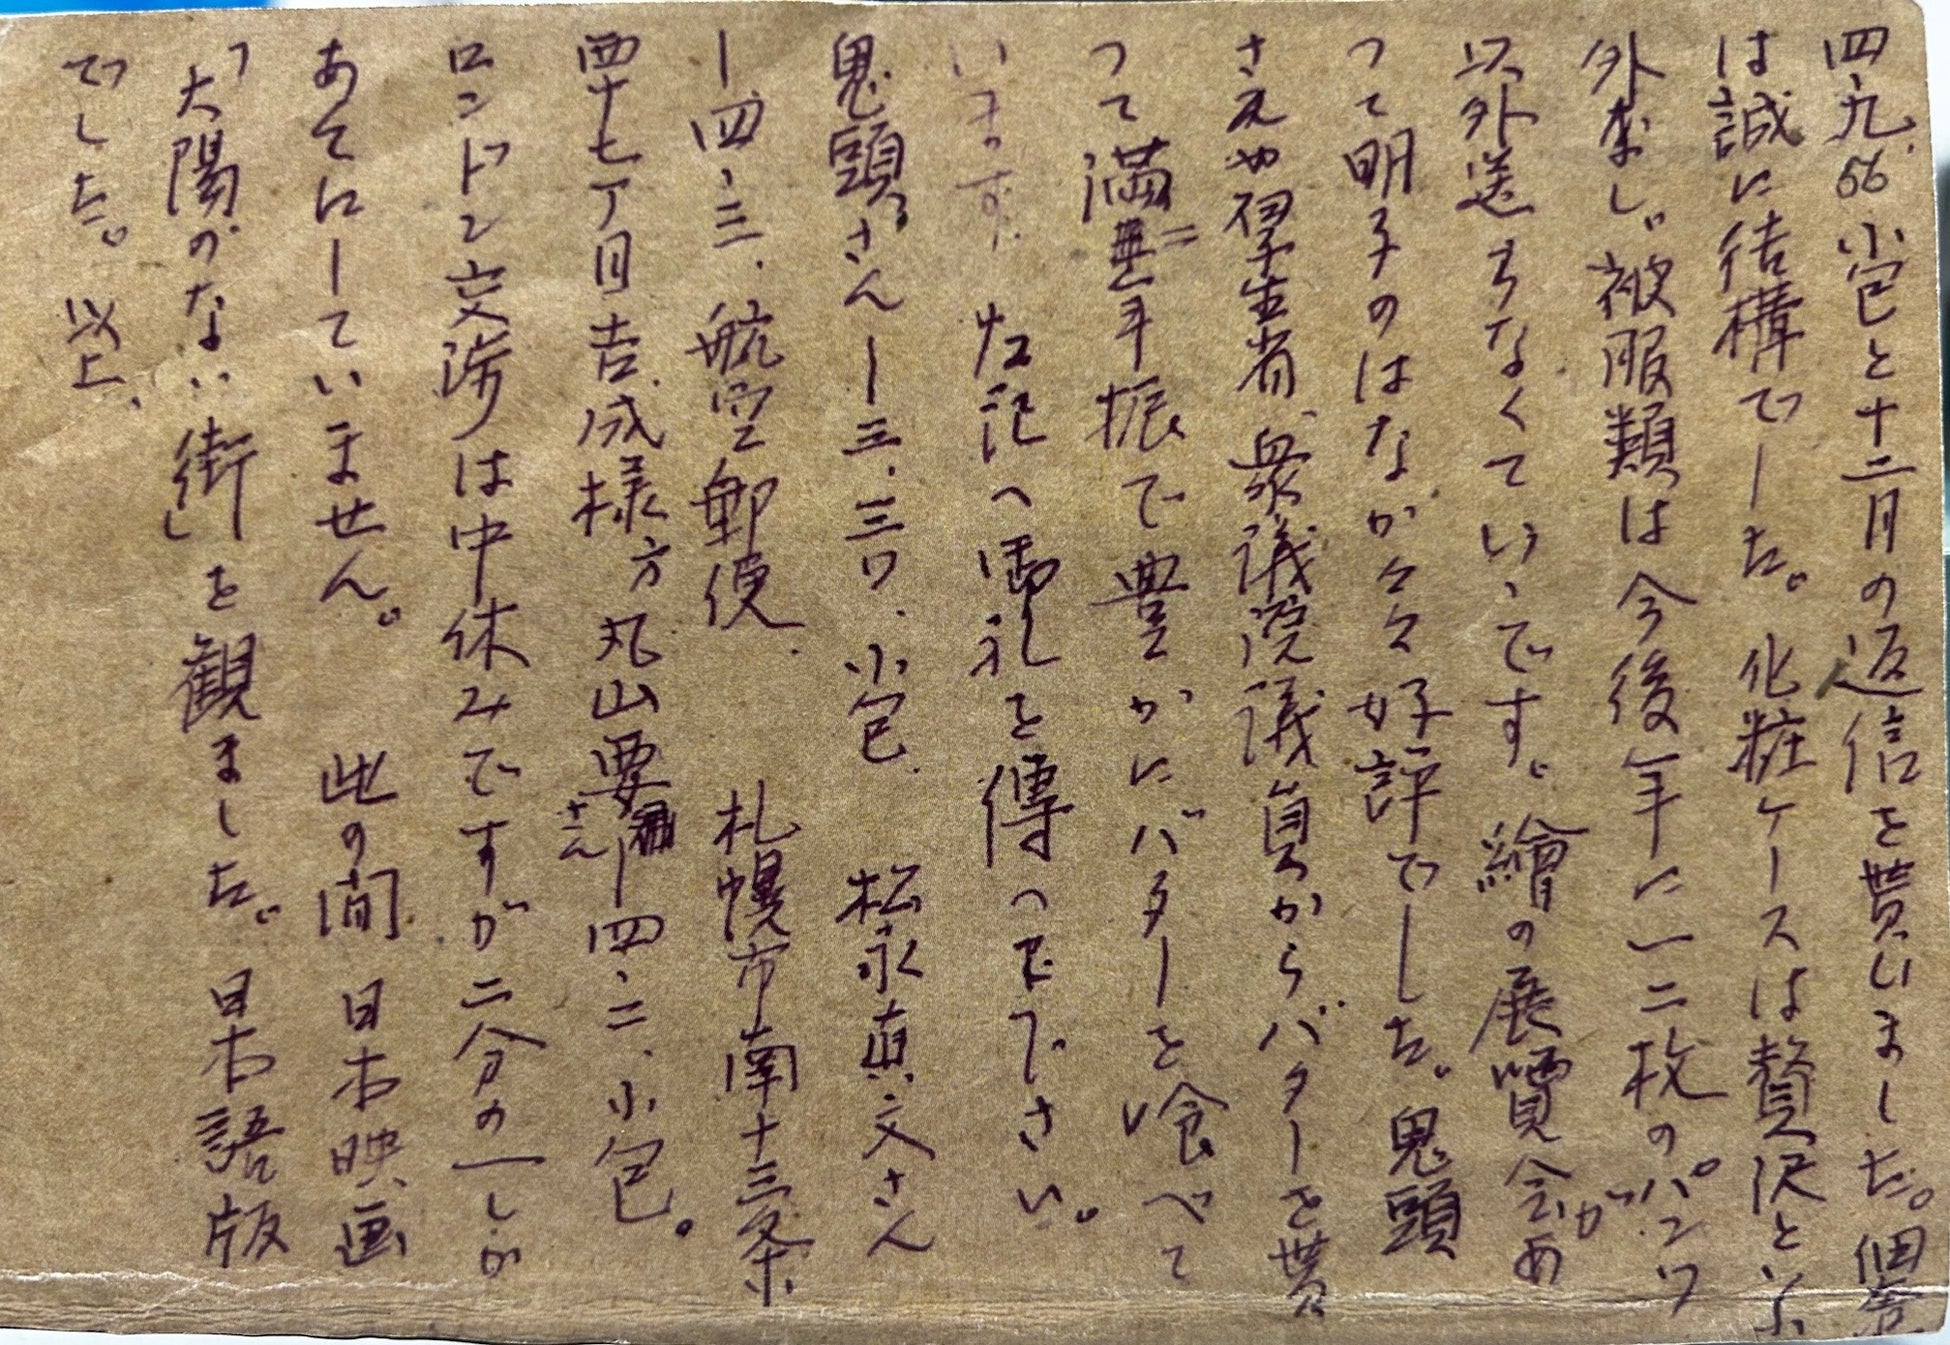 四、九、56 小包と十二月の返信を貰いました。個寄
は誠に結構でした。化粧ケースは贅沢という
外なし。被服類は今後年に一二枚のパンツ
以外送らなくていゝです。繪の展覧会があ
って明子のはなが々々好評でした。鬼頭
さんや厚生省、衆議院議員からバターを貰
って満二年振で豊かにバターを喰べて
います。左記へ御礼を傳へて下さい。
鬼頭さんー三、三〇、小包、松永真文さん
ー四、三、航空郵便、札幌市南十三条
西十七丁目吉成様方丸山要さんー四、二、小包。
ロンドン交渉は中休みですが二分の一しか
あてにしていません。此の間日本映画
「太陽のない街」を観ました。日本語版
でした。以上、